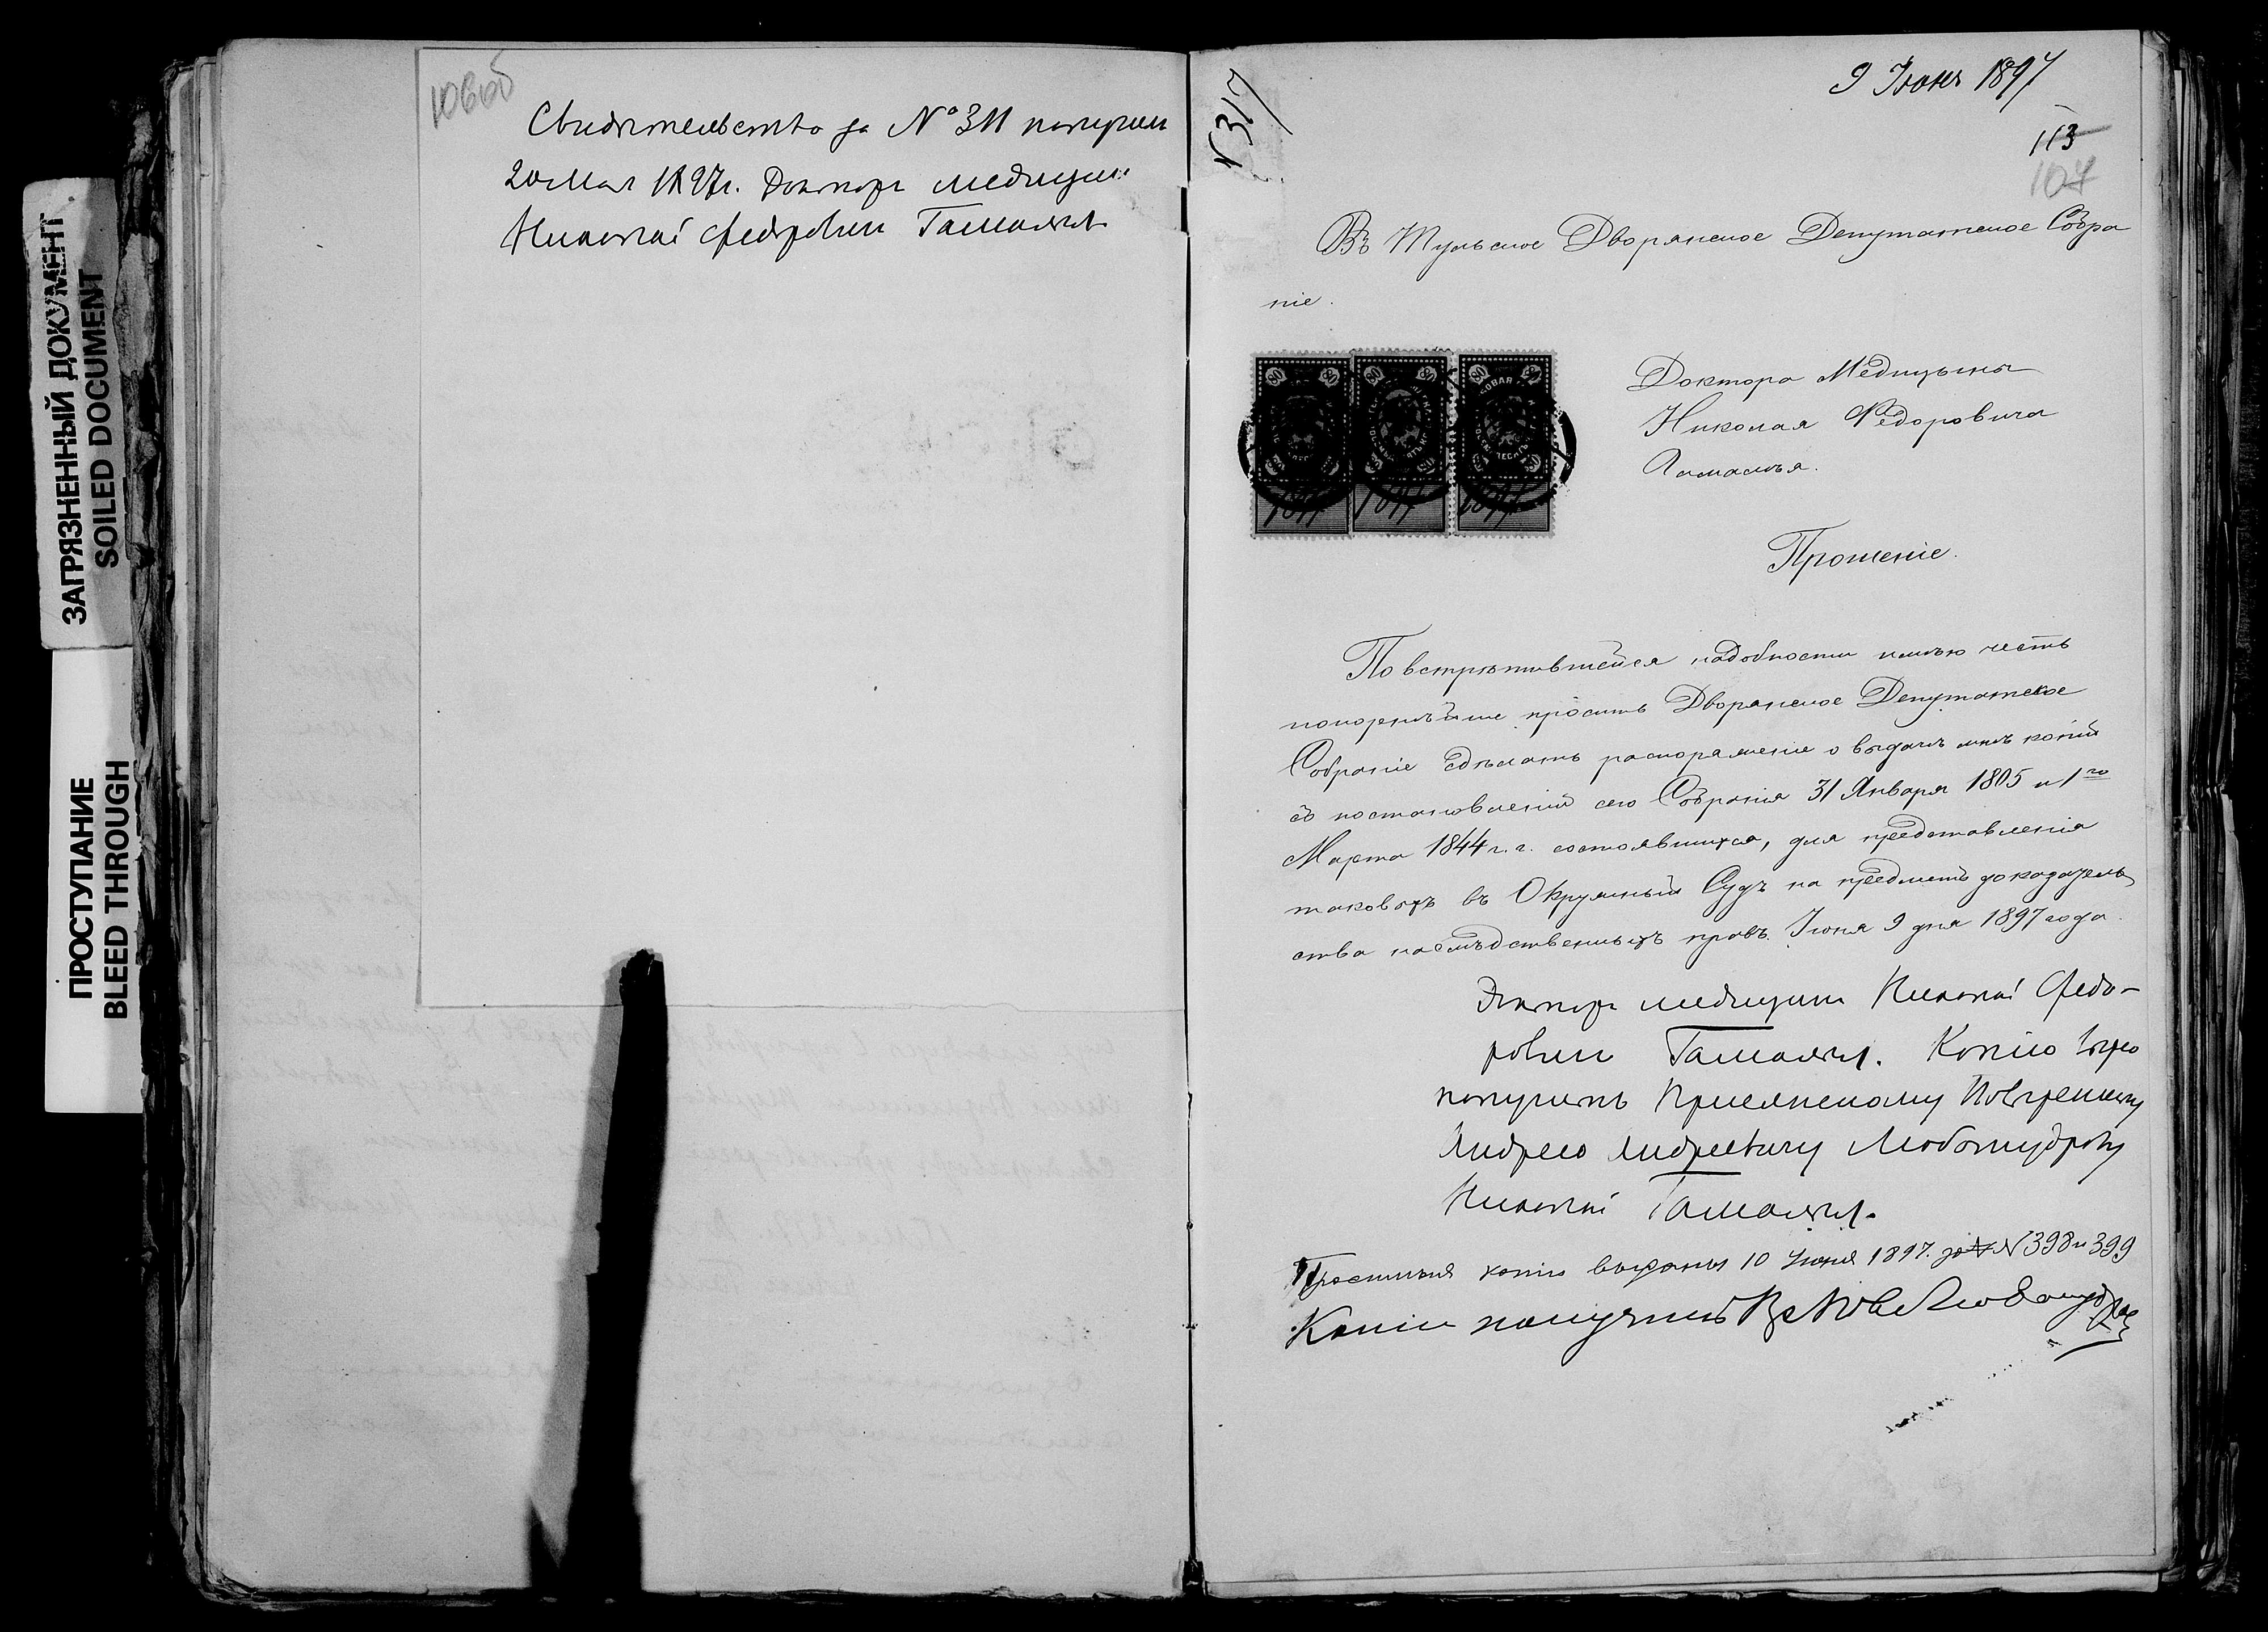 ЗАГРЯЗНЕННЫЙ ДОКУМЕНТ
SOILED DOCUMENT
ПРОСТУПАНИЕ
BLEED THROUGH
106об
Свидѣтельство за № 311 получил
20 Мая 1897г. Доктор медицины
Николай Федорович Гамалѣя
9 Іюня 1897
N 317
113
107
Въ Тульское Дворянское Депутатское Собра
ніе.
Доктора Медицыны
Николая Федоровича
Гамалѣя.
Прошеніе.
По встрѣтившейся надобности имѣю честь
покорнѣйше просить Дворянское Депутатское
Собраніе сдѣлать распоряженіе о выдачѣ мнѣ копій
съ постановленій сего Собранія 31 Января 1805 и 1го
Марта 1844 г.г. состоявшихся, для представленія
таковыхъ въ Окружный Судъ на предметъ доказатель
ства наслѣдственныхъ правъ. Іюня 9 дня 1897 года.
Доктор медицины Николай Федо-
рович Гамалѣя. Копію
получить Присяжному Повѣренному
Андрею Андреевичу Любомудрову
Николай Гамалѣя.
копіи выданы 10 Іюня 1897. за N 398 и 399
Копіи получилъ Пов Любомудров